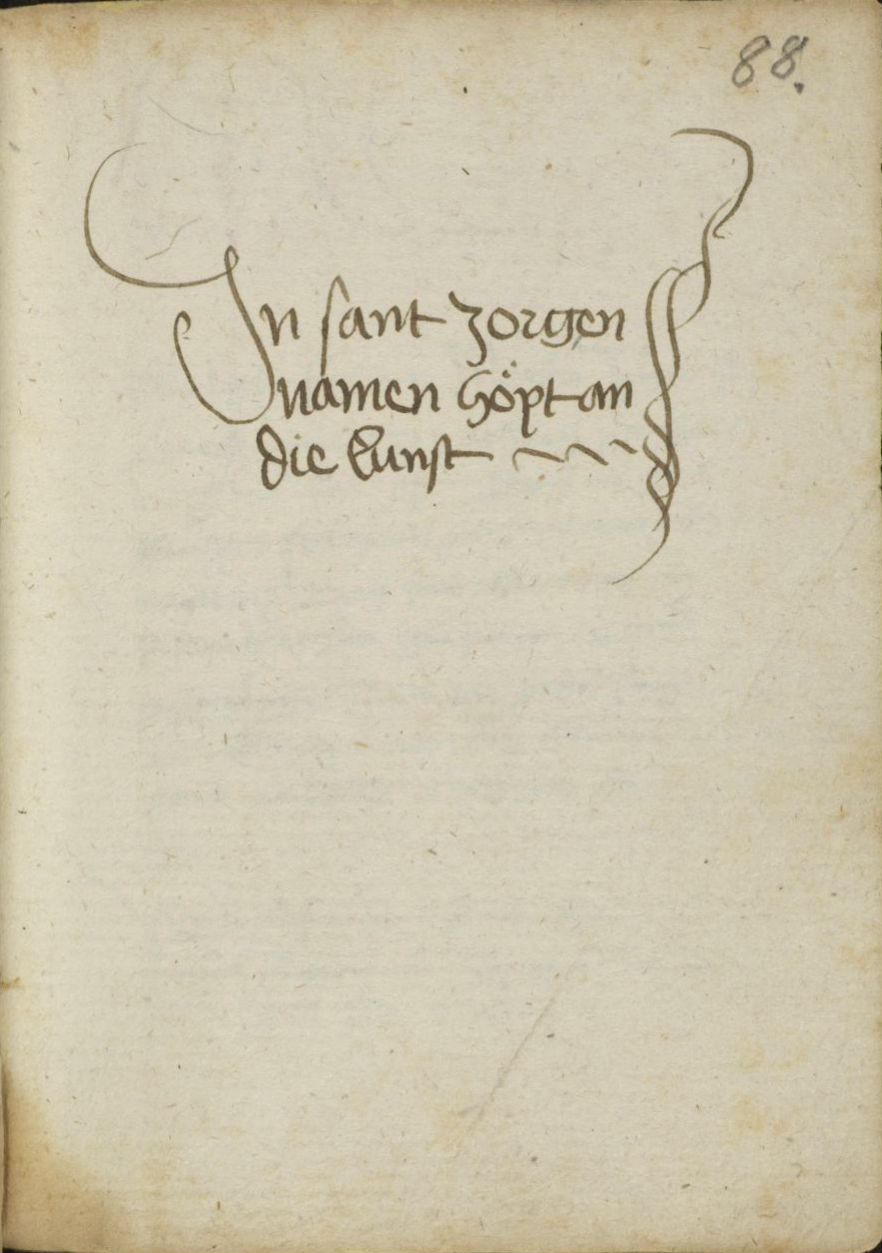 88.
In sant Jorgen
namen höpt an
die kunst